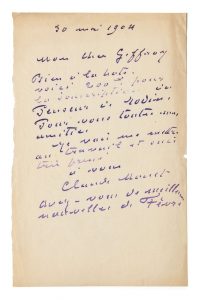 30 mai 1904
Mon cher Geffroy
Bien à la hâte,
voici 200 f pour
la souscription du
Penseur de Rodin.
Pour vous toutes mes
amitiés.
Je vais me mettre
au travail et suis
très
à vous
Claude Monet
Avez-vous de meilleures
nouvelles de